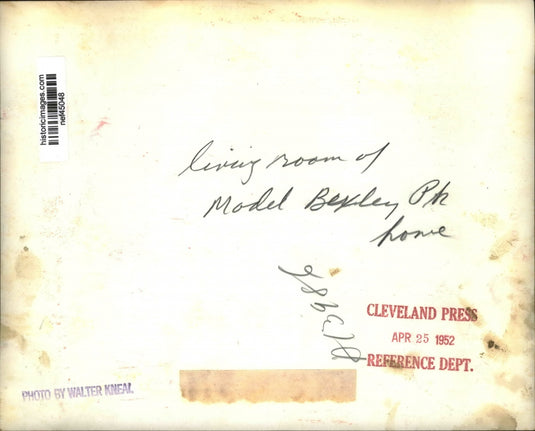 historicimages.com
nef45048
living room of
Model Bexley Pk
home
CLEVELAND PRESS
APR 25 1952
REFERENCE DEPT.
PHOTO BY WALTER KNEAL